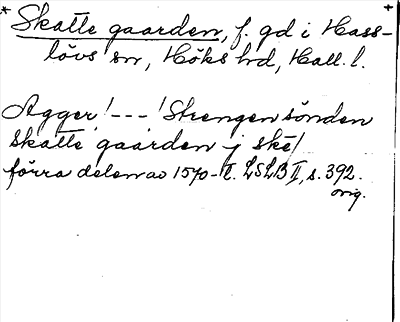 * Skatte gaarden, f. gd i Hass- +
lövs sn, Höks hd, Hall. l.
Agger! --- ! Strengen sönden
skatte gaarden j ske/
förra delen av 1570-t. LSLB II, s. 392.
orig.